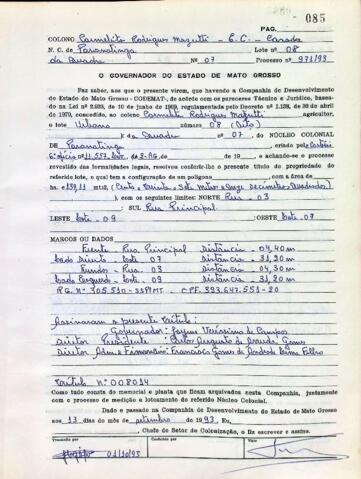 PAG. 085
COLONO Carmelito Rodrigues Mazutti - E.C. - Casado
N. C. de Paranatinga Lote nº 08
da Quadra Nº 07 Processo nº 971/93
O GOVERNADOR DO ESTADO DE MATO GROSSO
Faz saber, aos que o presente virem, que havendo a Companhia de Desenvolvimento
do Estado de Mato Grosso - CODEMAT-, de acôrdo com os pareceres Técnico e Jurídico, basea-
do na Lei nº 2.083, de 10 de junho de 1969, regulamentada pelo Decreto nº 1.138, de 30 de abril
de 1970, concedido, ao colono Carmelito Rodrigues Mazutti agricultor,
o lote Urbano número 08 (Oito)
da Quadra nº 07, DO NÚCLEO COLONIAL
DE Paranatinga criado pelo Cartório
6º ofício nº 11.557 Livro 2-AG de de de 19 e achando-se o processo
revestido das formalidades legais, resolveu conferir-lhe o presente título de propriedade do
referido lote, o qual tem a configuração de um polígono com a área de
ha = 137,11 mts2, (Cento e Trinta e Sete Metros e Onze Decímetros Quadrados)
com os seguintes limites: NORTE Rua 03
SUL Rua Principal
LESTE Lote - 09 OESTE Lote - 07
MARCOS OU DADOS
Frente - Rua Principal Distância - 04,40 m
Lado Direito - Lote - 07 Distância - 31,20 m
Fundos - Rua - 03 Distância - 04,30 m
Lado Esquerdo - Lote - 09 Distância - 31,20 m
R.G. Nº 305.510 - SSP/MT. C.P.F. 393.647.551-20
Assinaram o presente título:
Governador: Jayme Veríssimo de Campos
Diretor Presidente:
Título nº 008014
Como tudo consta do memorial e planta que ficam arquivados nesta Companhia, juntamente
com o processo de medição e loteamento do referido Núcleo Colonial.
Dado e passado na Companhia de Desenvolvimento do Estado de Mato Grosso
aos 13 dias do mês de setembro de 1993. Eu,
Chefe do Setor de Colonização, o fiz escrever e assino.
Transcrito por Conferido por Visto
01/10/93